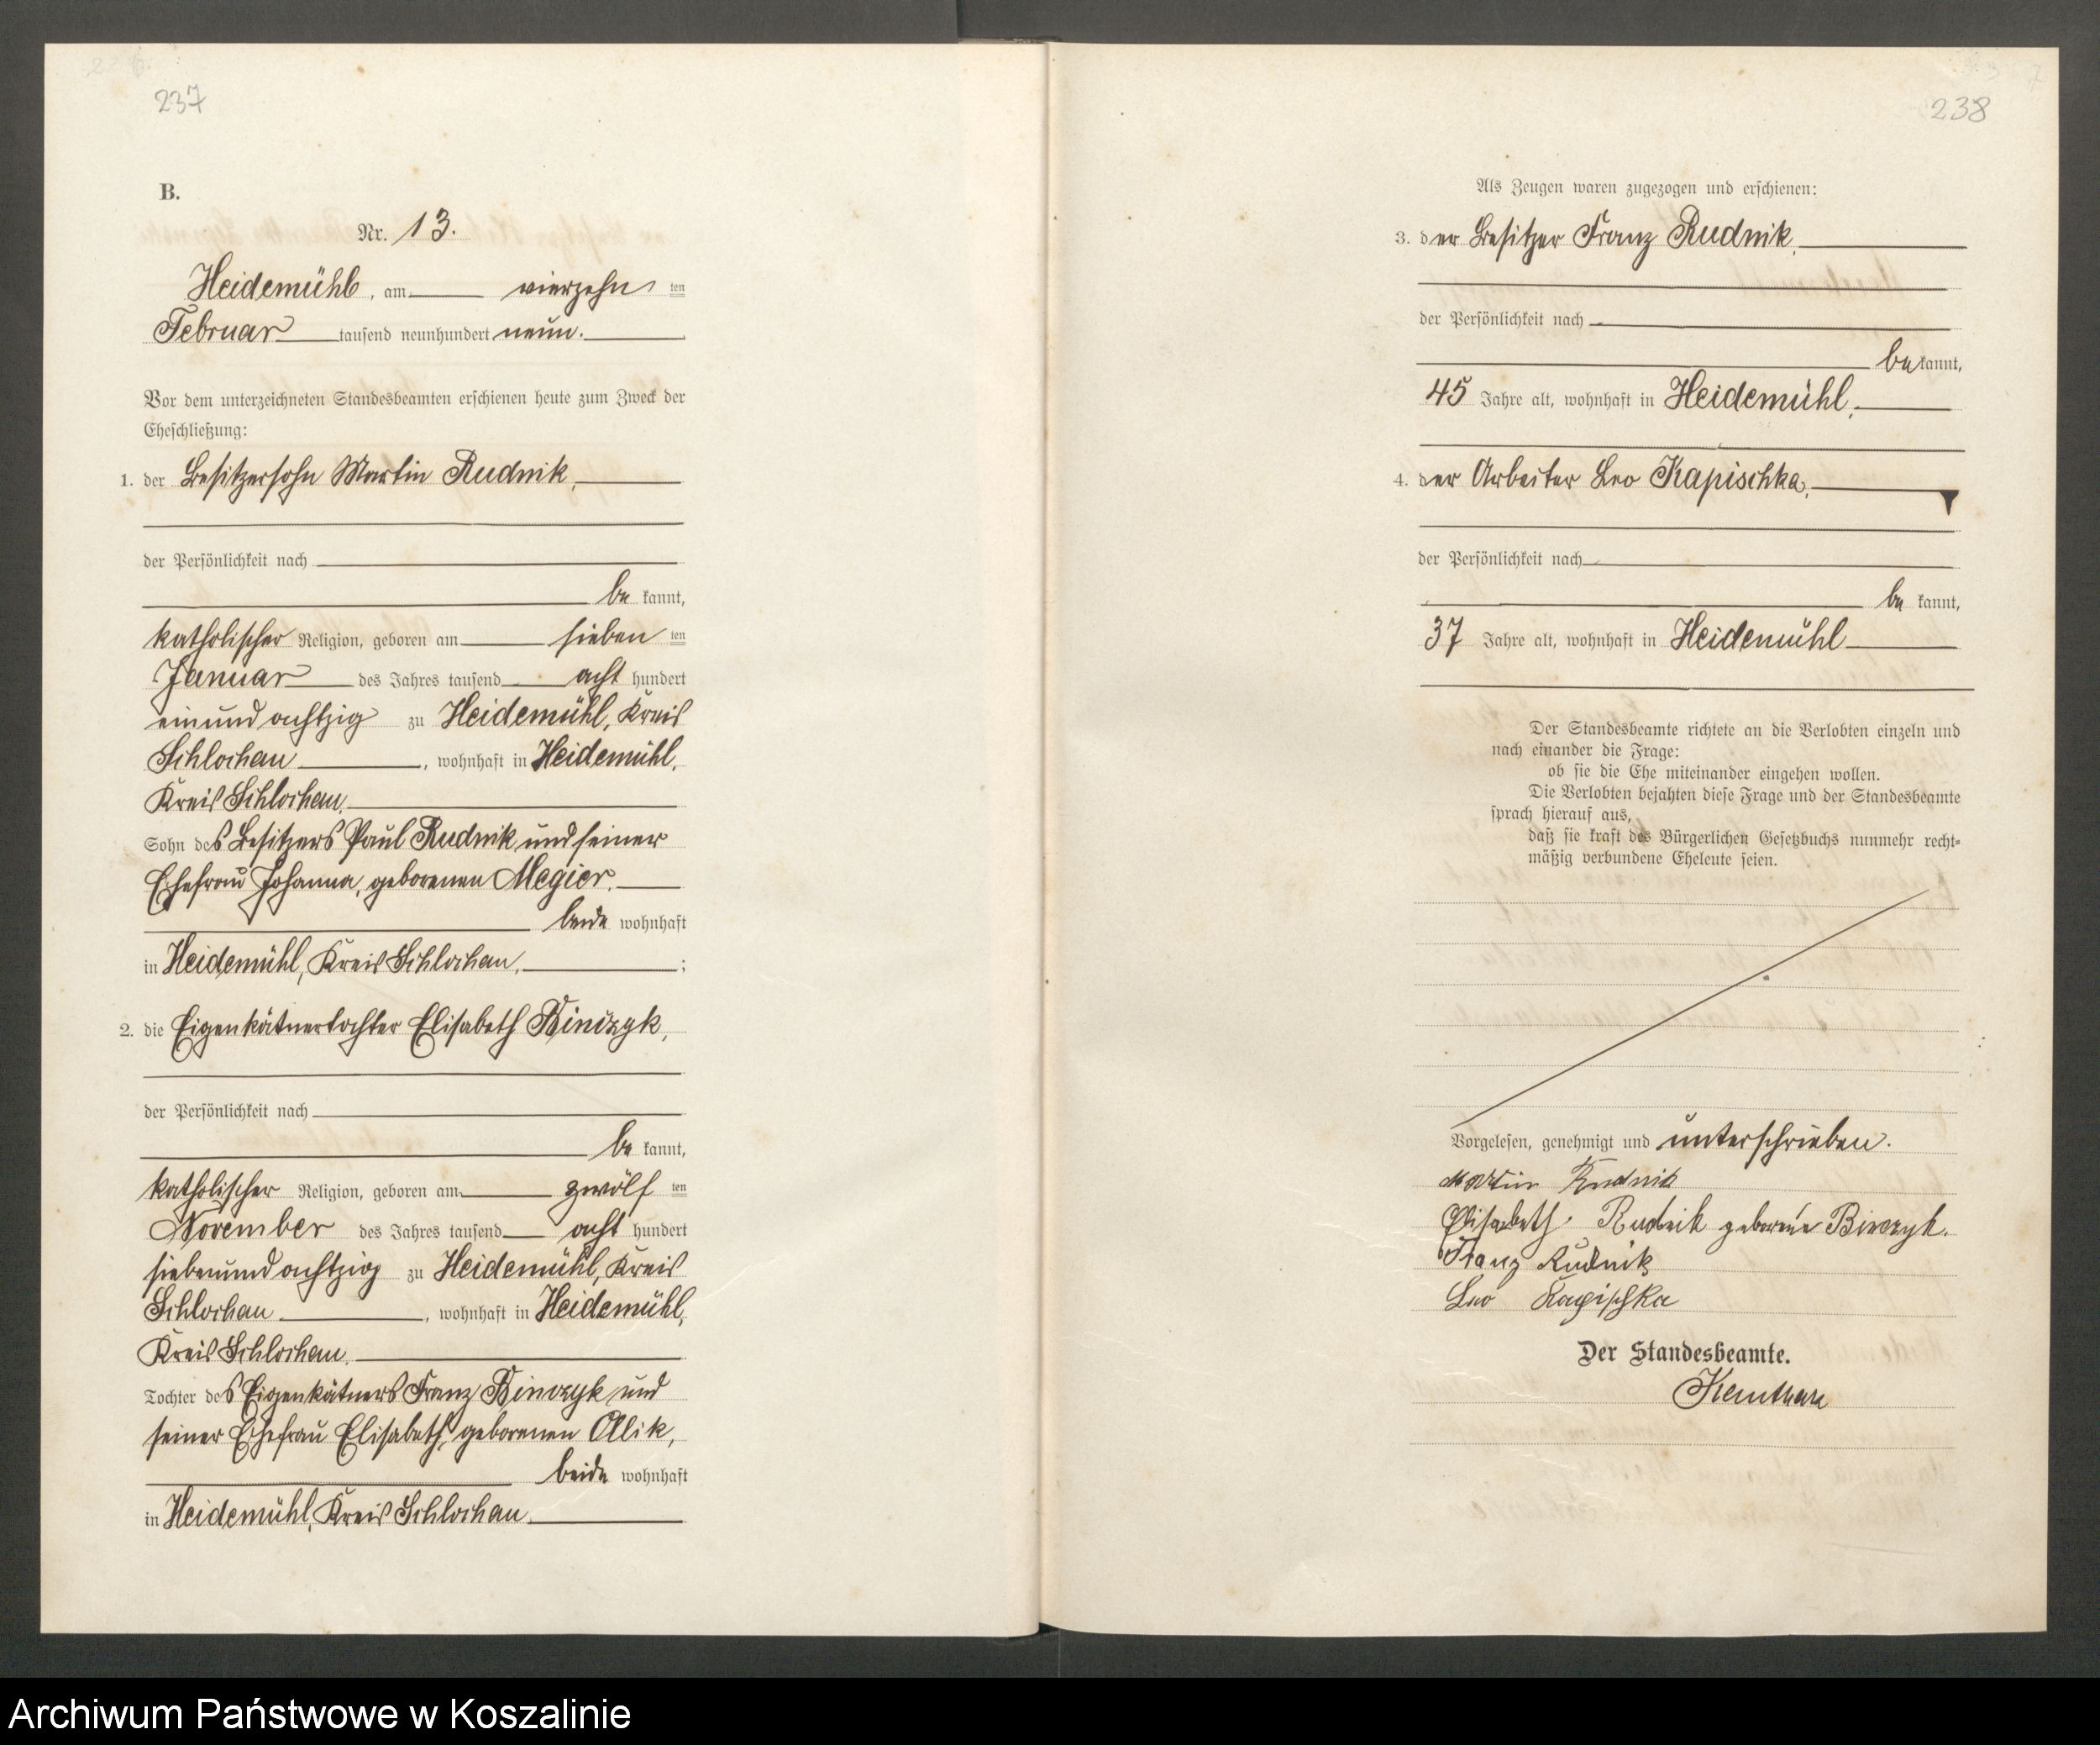 237
B.
Nr. 13.
Heidemühl, am vierzehn ten
Februar tausend neunhundert neun.
Vor dem unterzeichneten Standesbeamten erschienen heute zum Zweck der
Eheschließung:
1. der Besitzersohn Martin Rudnik,
der Persönlichkeit nach
be kannt,
katholischer Religion, geboren am sieben ten
Januar des Jahres tausend acht hundert
einundachtzig zu Heidemühl, Kreis
Schlochau, wohnhaft in Heidemühl,
Kreis Schlochau,
Sohn des Besitzers Paul Rudnik und seiner
Ehefrau Johanna, geborenen Megier,
beide wohnhaft
in Heidemühl, Kreis Schlochau, ;
2. die Eigenkätnertochter Elisabeth Binczyk,
der Persönlichkeit nach
be kannt,
katholischer Religion, geboren am zwölf ten
November des Jahres tausend acht hundert
siebenundachtzig zu Heidemühl, Kreis
Schlochau, wohnhaft in Heidemühl,
Kreis Schlochau,
Tochter des Eigenkätners Franz Binczyk und
seiner Ehefrau Elisabeth, geborenen Ollik,
beide wohnhaft
in Heidemühl, Kreis Schlochau.
238
Als Zeugen waren zugezogen und erschienen:
3. der Besitzer Franz Rudnik,
der Persönlichkeit nach
be kannt,
45 Jahre alt, wohnhaft in Heidemühl,
4. der Arbeiter Leo Kapischka,
der Persönlichkeit nach
be kannt,
37 Jahre alt, wohnhaft in Heidemühl
Der Standesbeamte richtete an die Verlobten einzeln und
nach einander die Frage:
ob sie die Ehe miteinander eingehen wollen.
Die Verlobten bejahten diese Frage und der Standesbeamte
sprach hierauf aus,
daß sie kraft des Bürgerlichen Gesetzbuchs nunmehr recht-
mäßig verbundene Eheleute seien.
Vorgelesen, genehmigt und unterschrieben.
Martin Rudnik
Elisabeth Rudnik geborene Binczyk.
Franz Rudnik
Leo Kapischka
Der Standesbeamte.
Archiwum Państwowe w Koszalinie